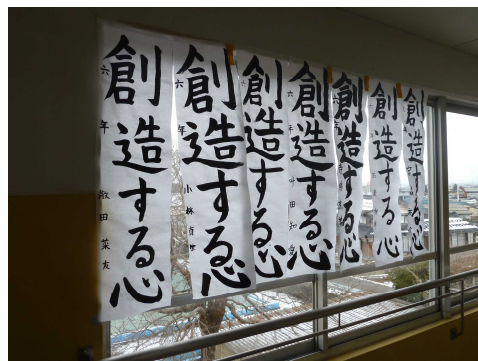 創造する心
六年
創造する心
六年
創造する心
創造する心
六年
創造する心
創造する心
創造する心